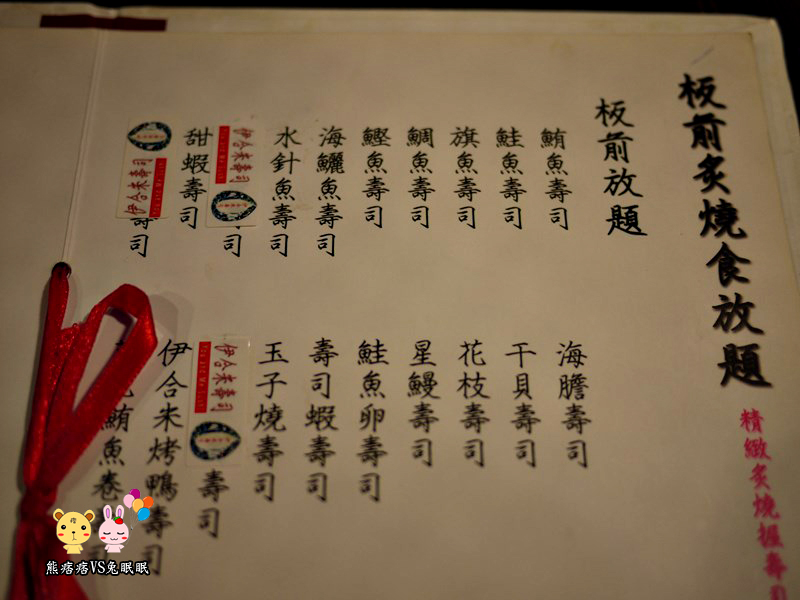 板前炙燒食放題
精緻炙燒握壽司
板前放題
鮪魚壽司
鮭魚壽司
旗魚壽司
鯛魚壽司
鰹魚壽司
海鱺魚壽司
水針魚壽司
伊合米壽司
司
甜蝦壽司
伊合米壽司
壽司
海膽壽司
干貝壽司
花枝壽司
星鰻壽司
鮭魚卵壽司
壽司蝦壽司
玉子燒壽司
伊合米壽司
壽司
伊合米烤鴨壽司
鮪魚卷
熊痞痞VS兔眠眠